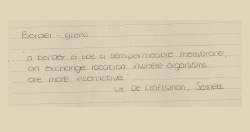 Border - grens
a border is like a semipermeable membrane,
an exchange location where organisms
are more interactive
uit De Craftsman, Sennett